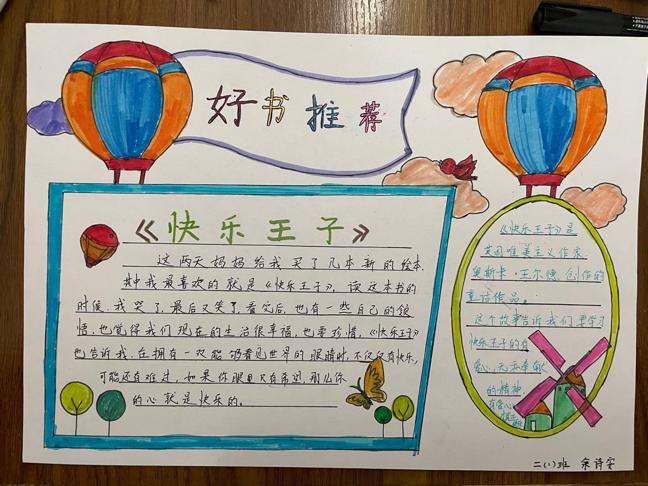 好书推荐
《快乐王子》
这两天妈妈给我买了几本新的绘本.
其中我最喜欢的就是《快乐王子》，读这本书的
时候.我哭了,最后又笑了,看完后,也有一些自己的领
悟.也觉得我们现在的生活很幸福,也要珍惜,《快乐王子》
也告诉我.在拥有一双能够看见世界的眼睛时,不仅仅有快乐,
可能还有难过,如果你眼里只有希望,那么你
的心就是快乐的。
《快乐王子》是
英国唯美主义作家
奥斯卡·王尔德创作的
童话作品。
这个故事告诉我们要学习
快乐王子的有
爱心,无私奉献
的精神,
有爱心
二(1)班 余诗安